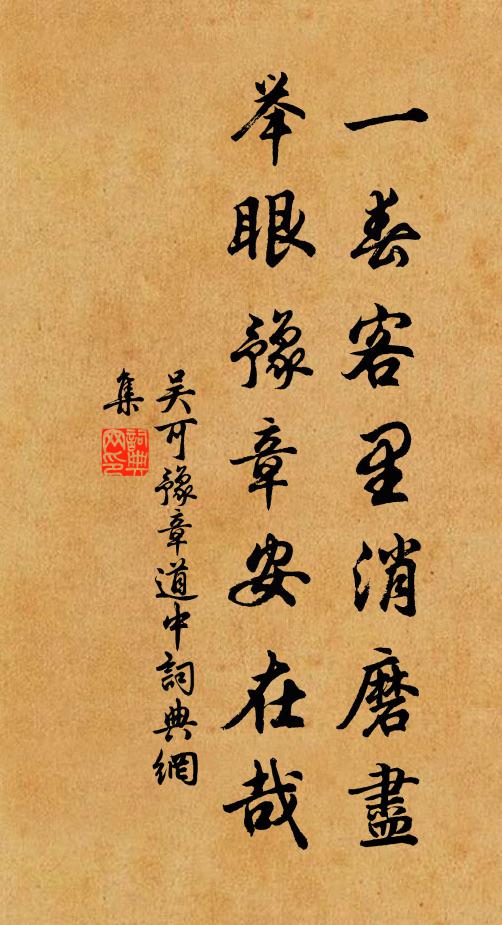 一春客里消磨盡
举眼豫章安在哉
吴可豫章道中詞典網
集
詞典
网印